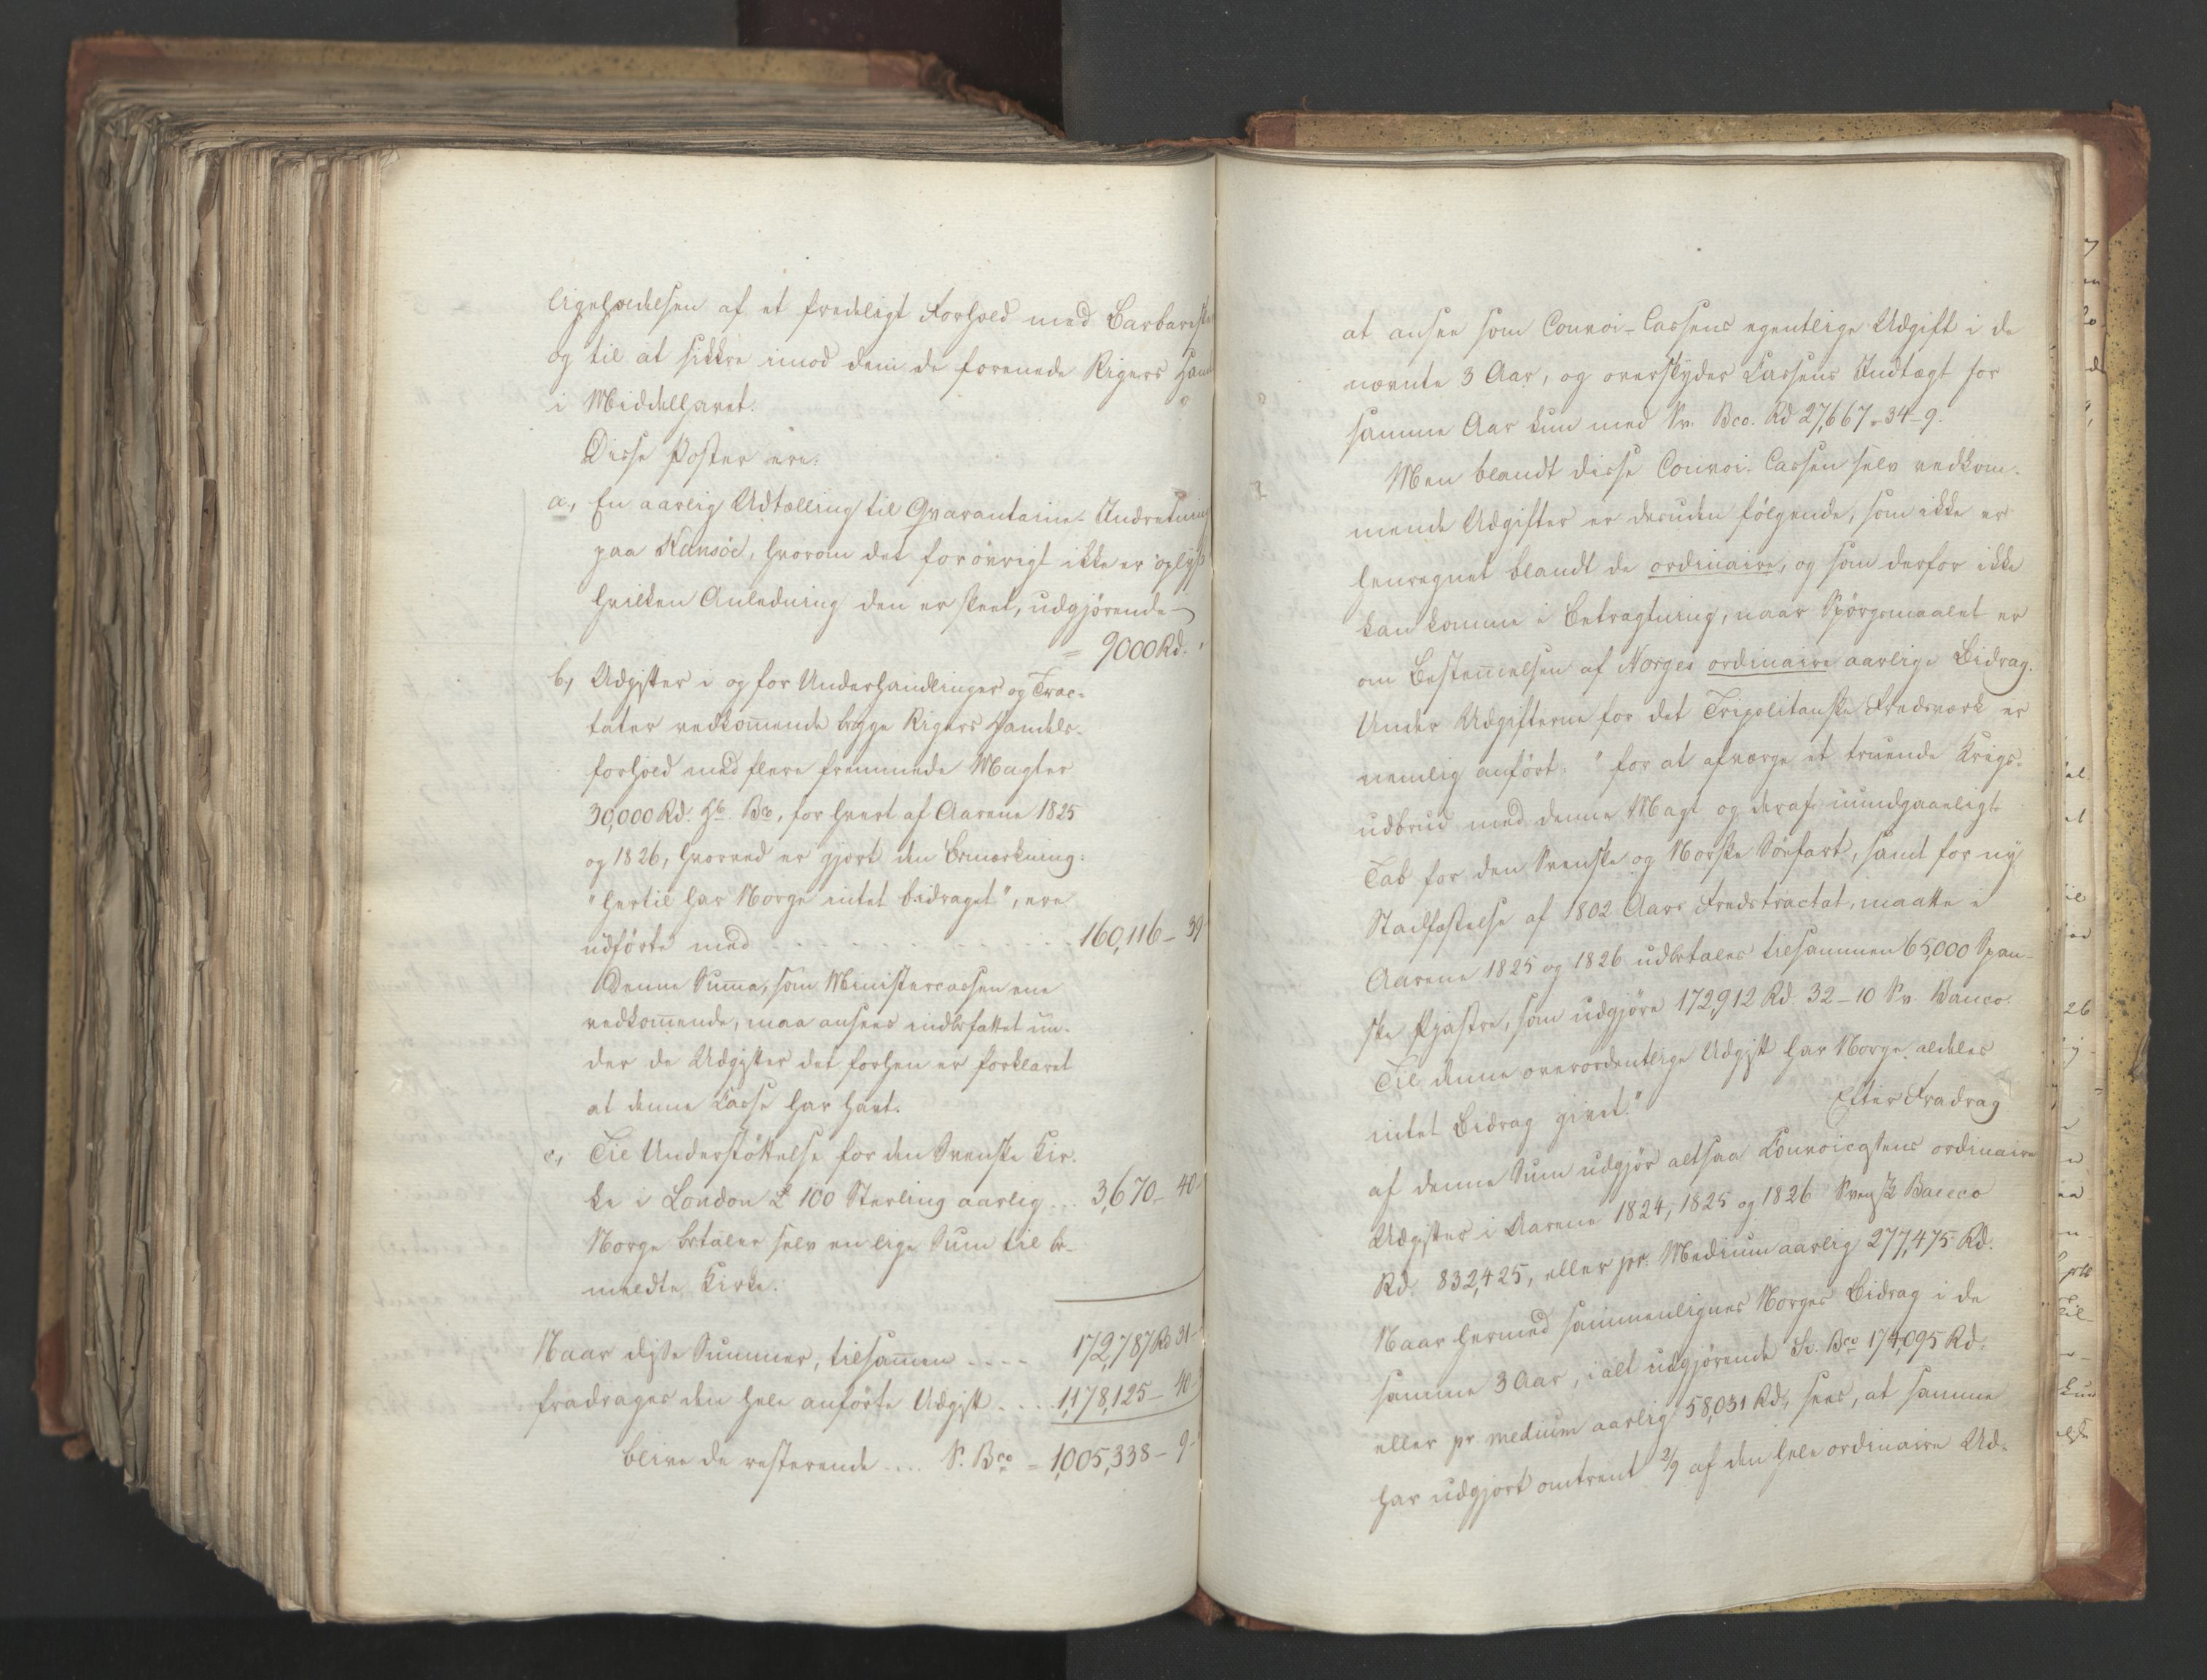 ligeholdelsen af et fredeligt Forhold med Barbaresk
og til at sikkre imod dem de forenede Rigers Hand
i Middelhavet.
Disse Poster ere:
a, En aarlig Udtælling til Qvarantaine-Indretning
paa Känsöe, hvorom det forövrigt ikke er oplyst
hvilken Anledning den er skeet, udgjörende
= 9000 Rd.
b, Udgifter i og for Underhandlinger og Trac-
tater vedkommende begge Rigers Handels-
forhold med flere fremmede Magter
30,000 Rd. Hb. Bco, for hvert af Aarene 1825
og 1826, hvorved er gjort den Bemærkning:
"hertil har Norge intet bidraget", ere
udförte med . . . . . . . . . . 160,116 - 39
Denne Summa, som Ministercassen ene
vedkommende, maa ansees indbefattet un-
der de Udgifter det forhen er forklaret
at denne Casse har havt.
c, Til Understöttelse for den Svenske Kir-
ke i London £ 100 Sterling aarlig . . . 3,670 - 40
Norge betaler selv en lige Sum til be-
meldte Kirke.
Naar disse Summer, tilsammen . . . . 172,787 Rd 31
fradrages den hele anförte Udgift . . . . 1,178,125 - 40
blive de resterende . . . . S. Bco = 1,005,338 - 9
at ansee som Convoi-Cassens egentlige Udgift i de
nævnte 3 Aar, og overskyder Cassens Indtægt for
samme Aar kun med Sv. Bco. Rd 27,667 - 34 - 9.
Men blandt disse Convoi-Cassen selv vedkom-
mende Udgifter er desuden følgende, som ikke er
henregnet blandt de ordinaire, og som derfor ikke
kan komme i Betragtning, naar Spörgsmaalet er
om Bestemmelsen af Norges ordinaire aarlige Bidrag.
Under Udgifterne for det Tripolitanske Fredsværk er
nemlig anfört: "for at afværge et truende Krigs-
udbrud med denne Magt og deraf uundgaaeligt
Tab for den Svenske og Norske Söefart, samt for ny
Stadfæstelse af 1802 Aars Fredstractat, maatte i
Aarene 1825 og 1826 udbetales tilsammen 65,000 Span-
ske Pjastre, som udgjöre 172,912 Rd. 32 - 10 Sv. Banco.
Til denne overordentlige Udgift har Norge aldeles
intet Bidrag givet." Efter Fradrag
af denne Sum udgjör altsaa Convoicassens ordinaire
Udgifter i Aarene 1824, 1825 og 1826 Svensk Banco
Rd. 832,425, eller pr. Medium aarlig 277,475 Rd.
Naar hermed sammenlignes Norges Bidrag i de
samme 3 Aar, i alt udgjörende Sv. Bco 174,095 Rd.
eller pr medium aarlig 58,031 Rd, sees, at samme
har udgjort omtrent 2/9 af den hele ordinaire Ud-